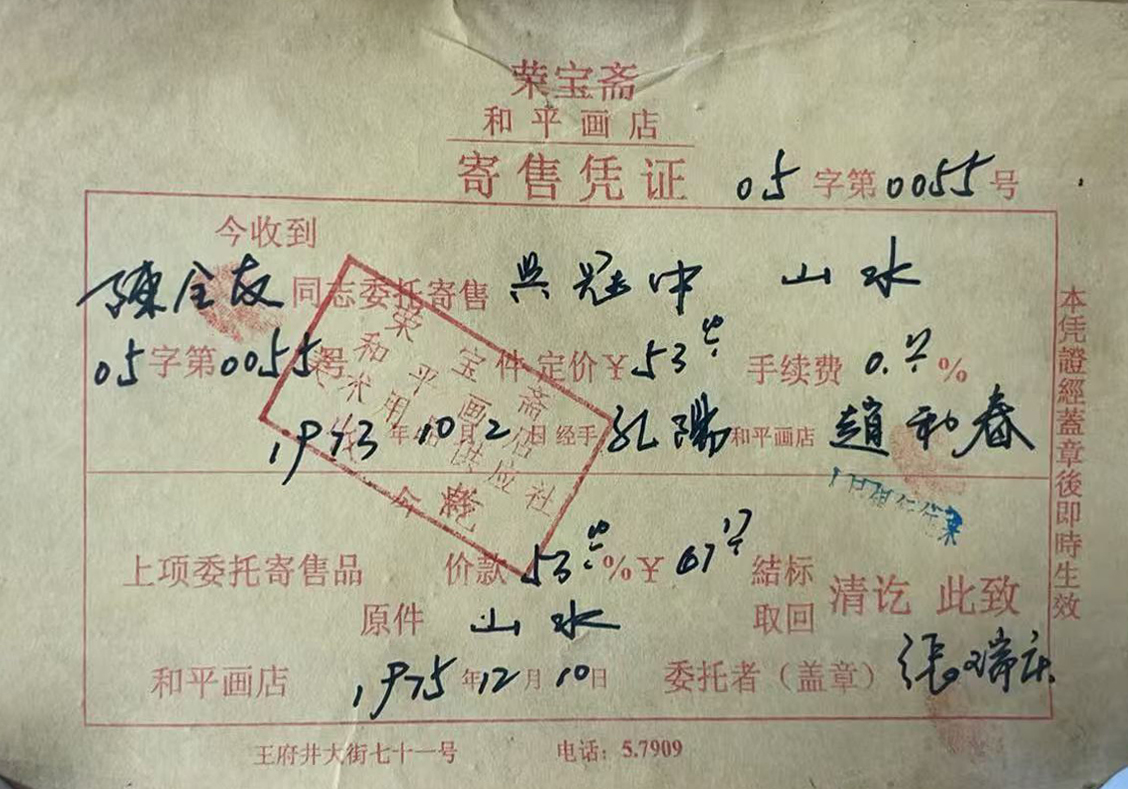 荣宝斋
和平画店
寄售凭证 05字第0055号
今收到
陳全友同志委托寄售 吴冠中 山水
05字第0055号 件 定价¥53 手续费 0. %
1973年10月2日 经手 孔陽 和平画店 趙和春
上项委托寄售品 价款 53 %¥ 67 結标
原件 山水 取回 清讫 此致
和平画店 1975年12月10日 委托者（盖章） 張瑞庆
王府井大街七十一号 电话：5.7909
本凭證經蓋章後即時生效
荣宝斋
和平画店
美术用品供应社